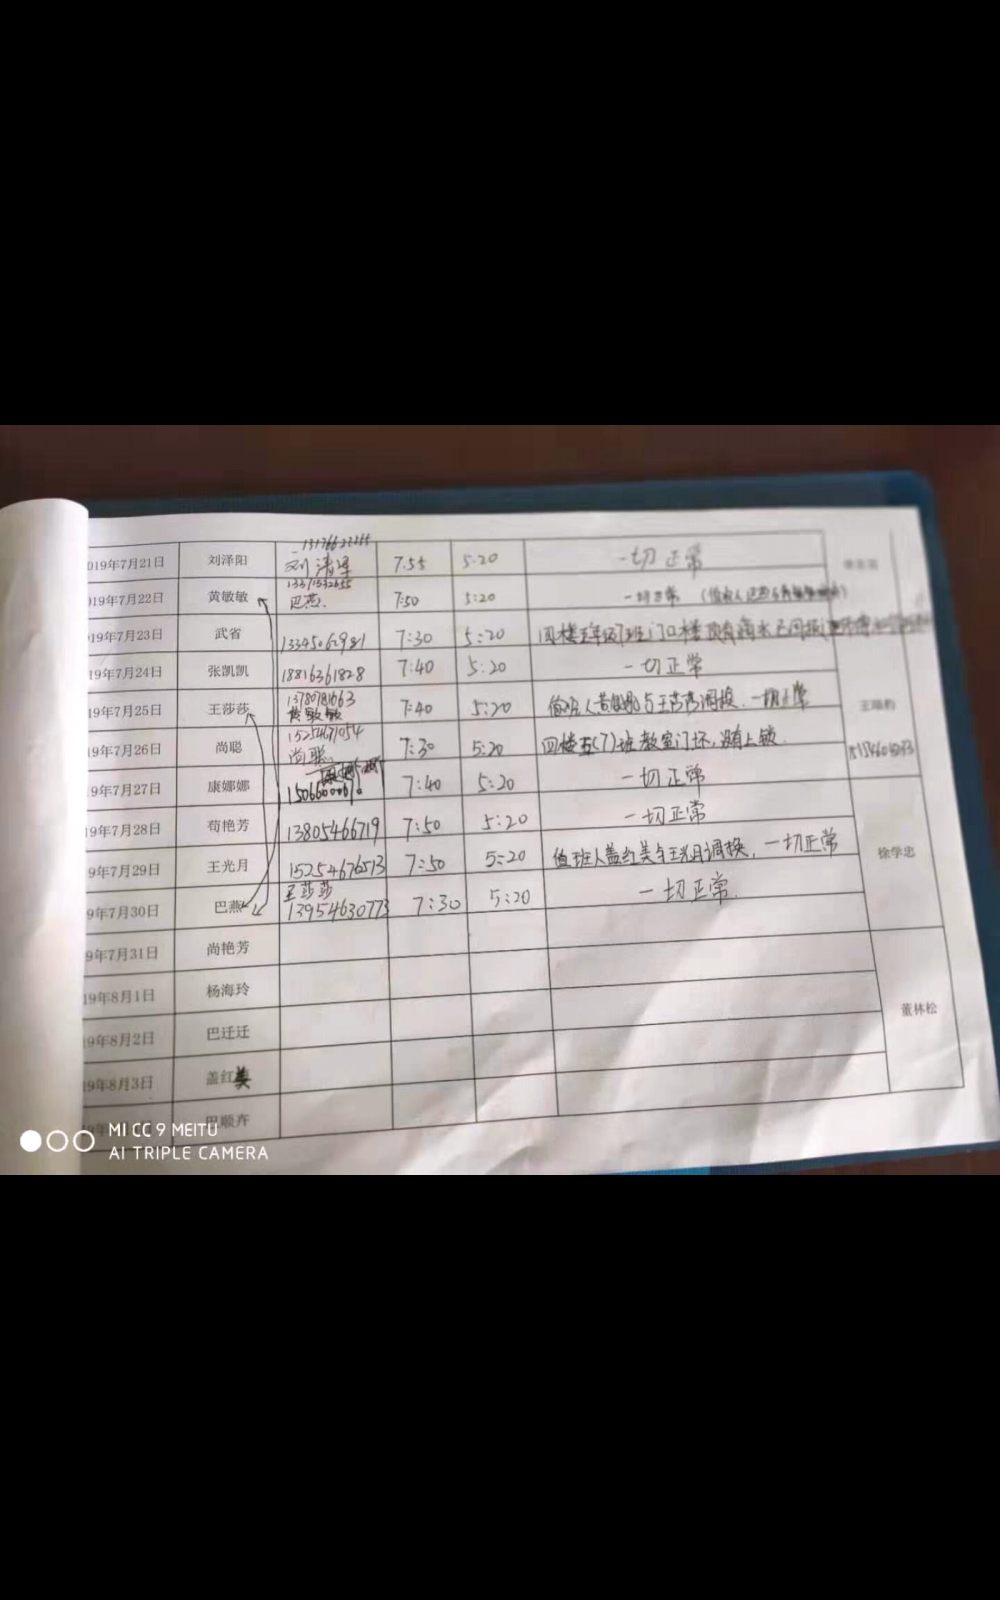 019年7月21日 刘泽阳 刘清军 7.55 5.20 一切正常
19年7月22日 黄敏敏 巴燕. 7:50 5:20 一切正常
19年7月23日 武省 13345062981 7:30 5:20
19年7月24日 张凯凯 18816361828 7:40 5:20 一切正常
13780781663
19年7月25日 王莎莎 黄敏敏 7:40 5:20 值班人黄敏敏与王莎莎调换. 一切正常
15254671054
19年7月26日 尚聪 尚聪. 7:30 5:20 四楼五(7)班教室门坏,没有上锁.
19年7月27日 康娜娜 7:40 5:20 一切正常
19年7月28日 苟艳芳 13805466719 7:50 5:20 一切正常
19年7月29日 王光月 15254676513 7:50 5:20 值班人盖红美与王光月调换, 一切正常
徐学忠
王莎莎
9年7月30日 巴燕 13954630773 7:30 5:20 一切正常.
9年7月31日 尚艳芳
19年8月1日 杨海玲
董林松
19年8月2日 巴迁迁
19年8月3日 盖红美
巴顺卉
MI CC 9 MEITU
AI TRIPLE CAMERA